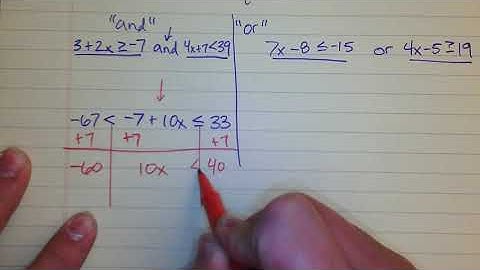 "and" "or"
3+2x ≥ -7 and 4x+7<39 7x-8 ≤ -15 or 4x-5 ≥ 19
-67 < -7 + 10x ≤ 33
+7 +7 +7
-60 10x < 40